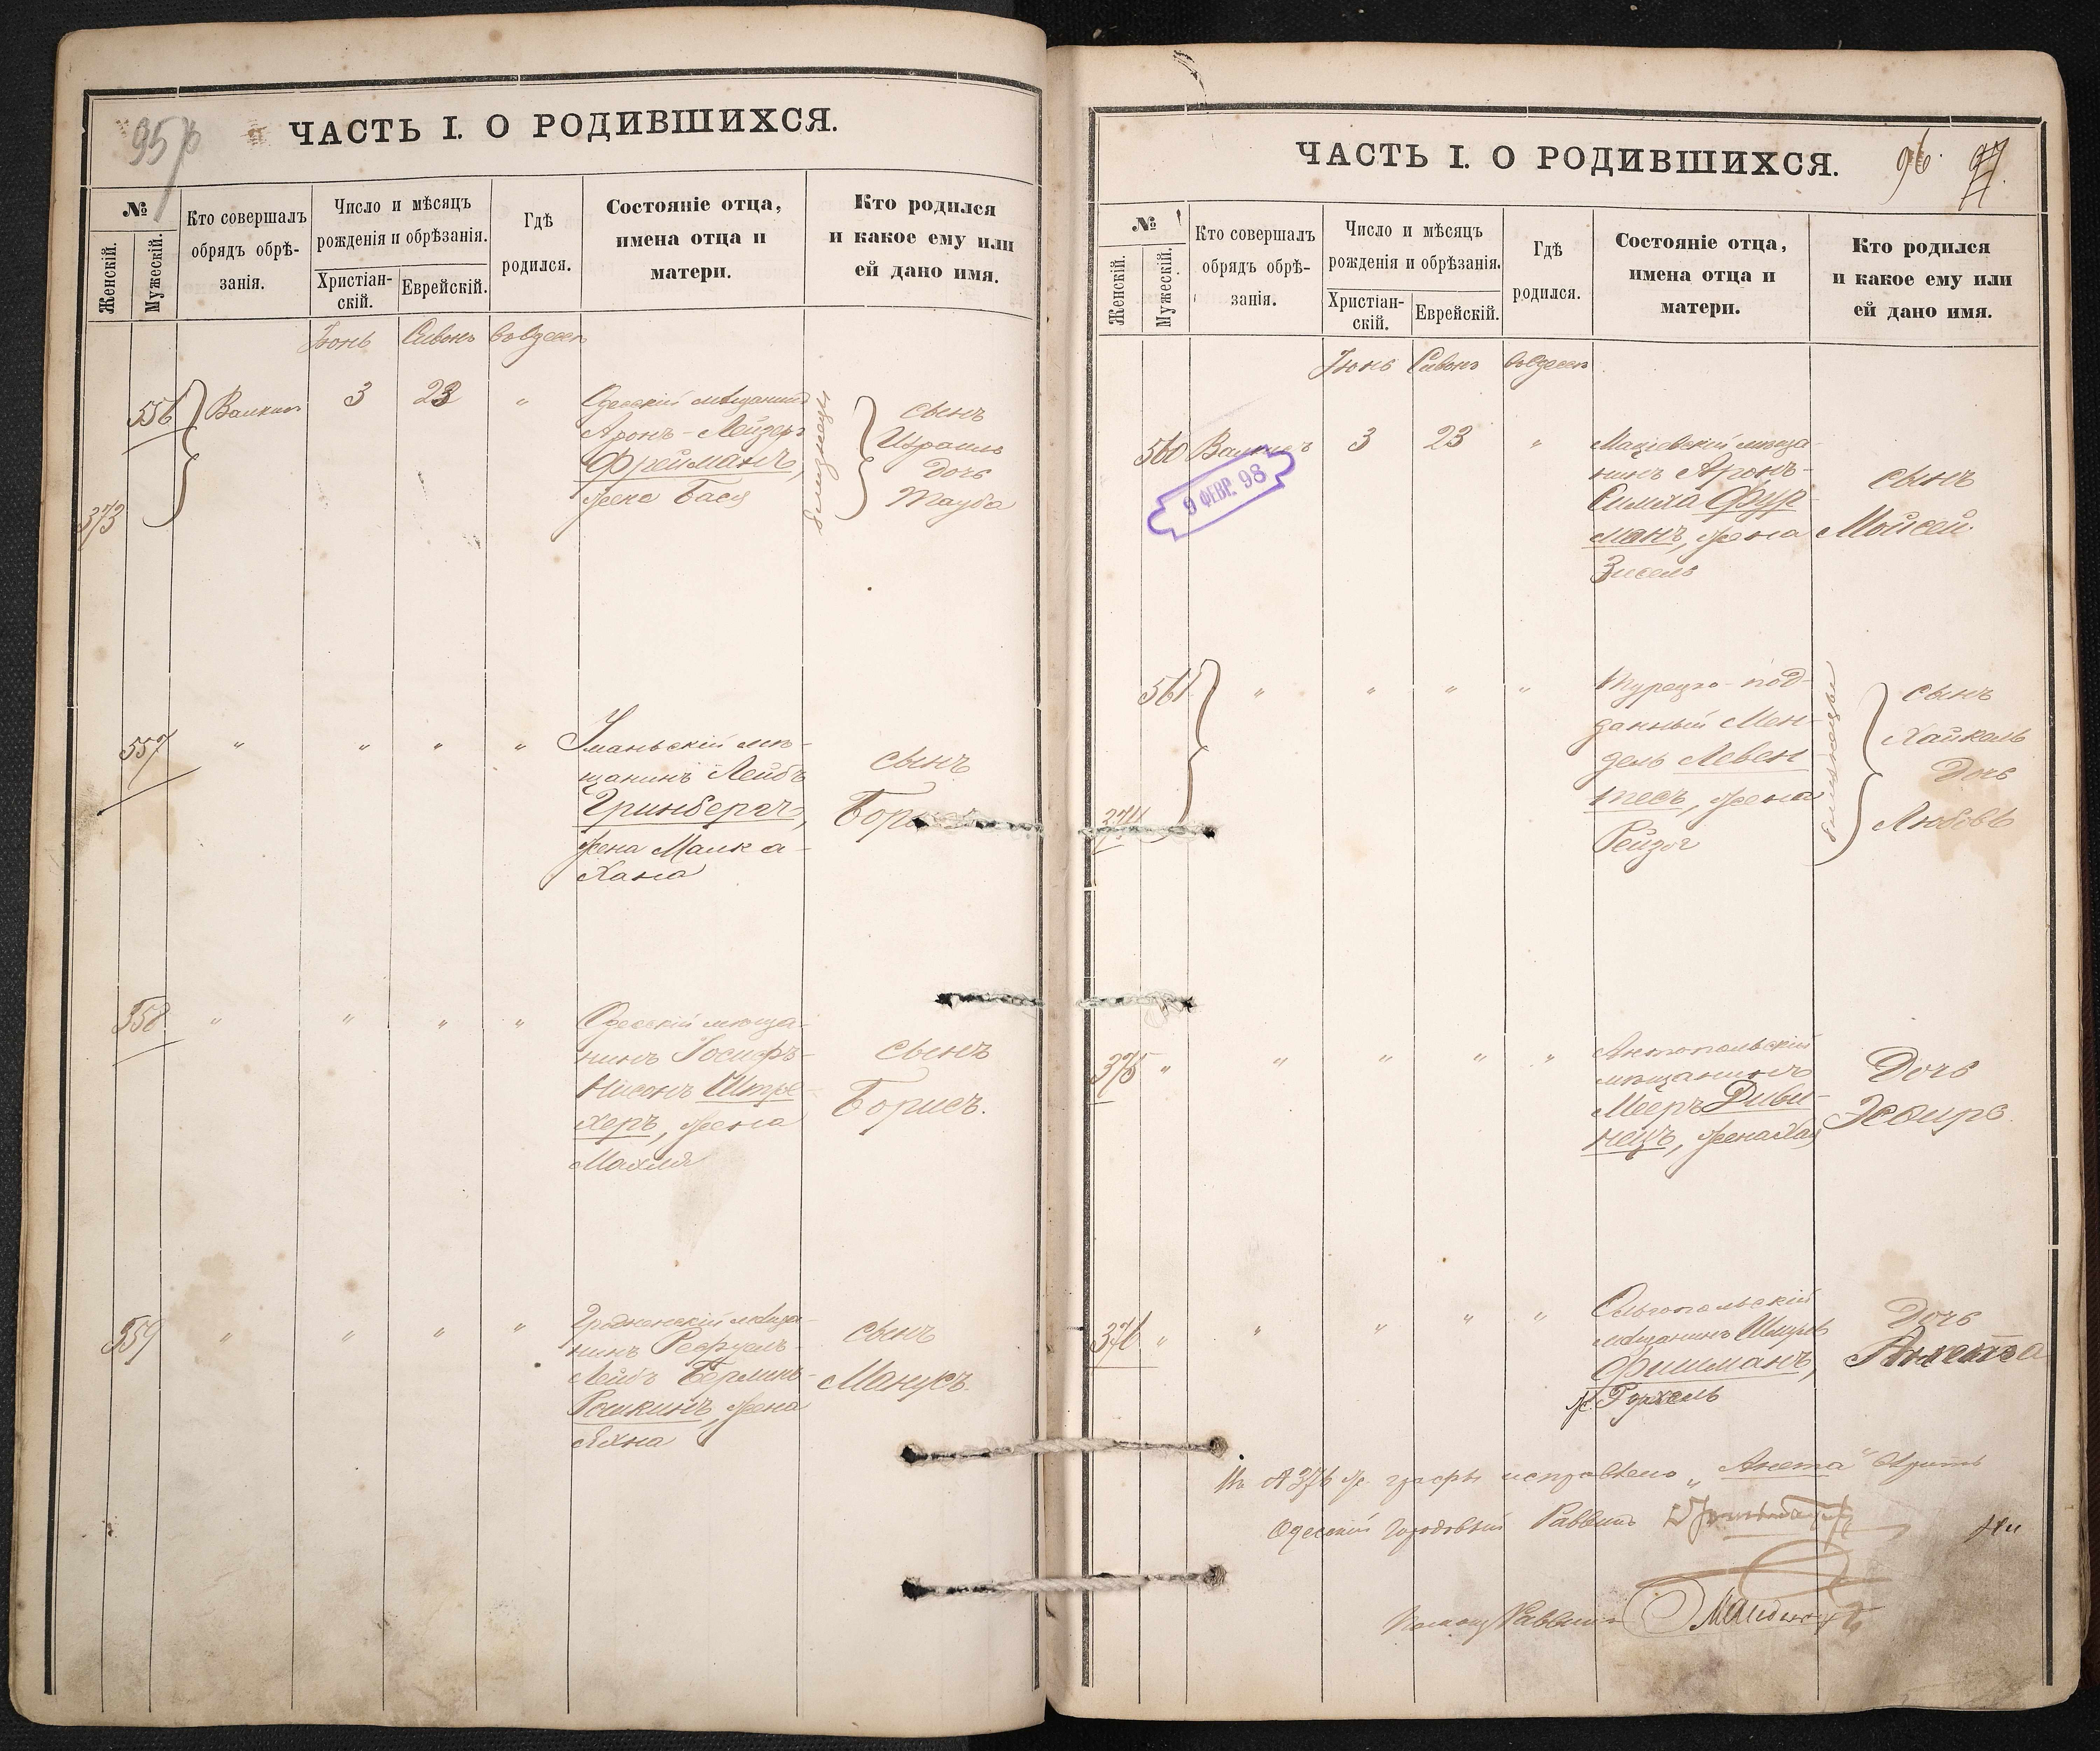 95
ЧАСТЬ I. О РОДИВШИХСЯ.
№
Женскій.
Мужескій.
Кто совершалъ
обрядъ обрѣ-
занія.
Число и мѣсяцъ
рожденія и обрѣзанія.
Христіан-
скій.
Еврейскій.
Гдѣ
родился.
Состояніе отца,
имена отца и
матери.
Кто родился
и какое ему или
ей дано имя.
Іюнь Сивонъ
556
373
3 23 "
Одесскій мѣщанинъ
Аронъ-Лейзеръ
Фрейманъ,
жена Бася
близнецы
сынъ
Израиль
Дочь
Тауба
557 " " " "
Уманьскій мѣ-
щанинъ Лейбъ
Гринбергъ,
жена Малка-
Хана
сынъ
558 " " " "
Одесскій мѣща-
нинъ Іосифъ-
Нисонъ Штре-
херъ, жена
Махля
сынъ
Борисъ.
559 " " " "
Гродненскій мѣща-
нинъ Рефуель-
Лейбъ Берлинъ-
Рошкинъ, жена
Яхна
сынъ
Манусъ.
ЧАСТЬ I. О РОДИВШИХСЯ.
96. 97.
№
Женскій.
Мужескій.
Кто совершалъ
обрядъ обрѣ-
занія.
Число и мѣсяцъ
рожденія и обрѣзанія.
Христіан-
скій.
Еврейскій.
Гдѣ
родился.
Состояніе отца,
имена отца и
матери.
Кто родился
и какое ему или
ей дано имя.
Іюнь Сивонъ
560 3 23 "
9 ФЕВР. 98
мѣща-
нинъ Аронъ-
Симха Фур-
манъ, жена
Зисель
сынъ
Мойсей.
561 " " " "
374
Турецко-под-
данный Мен-
дель Левен
тесъ, жена
Рейзя
близнецы
сынъ
Хайкель
Дочь
Любовь
375 " " " " "
Антопольскій
мѣщанинъ
Мееръ Диви-
нецъ, жена Хая
Дочь
Эсѳирь.
376 " " " " "
Ольгопольскій
мѣщанинъ Шмуль
Фишманъ,
ж. Рухель
Дочь
Анета
376 графы исправлено „Анета"
Одесскій Городовый Раввинъ
Помощ. Раввина